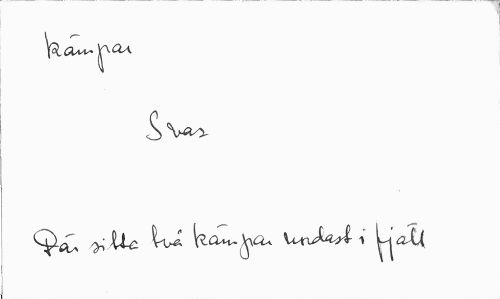 kämpar
Svar
Där sitta två kämpar undast i fjäll